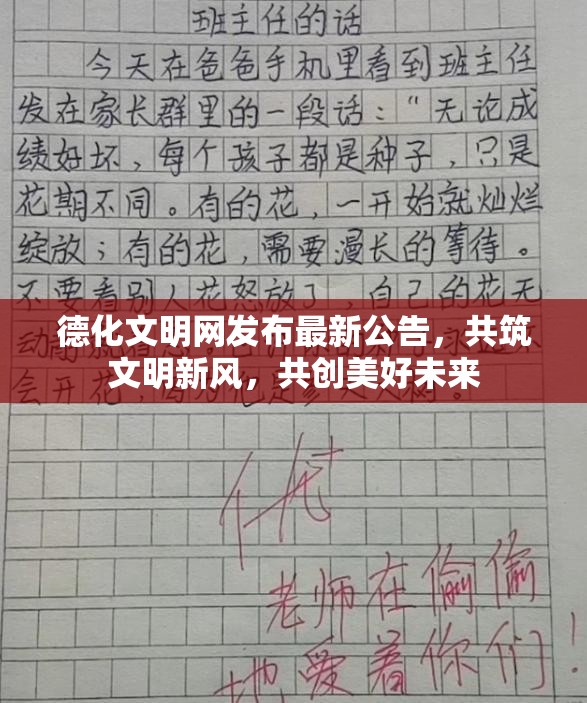 班主任的话
今天在爸爸手机里看到班主任
发在家长群里的一段话：“无论成
绩好坏，每个孩子都是种子，只是
花期不同。有的花，一开始就灿烂
绽放；有的花，需要漫长的等待。
不要看别人花怒放了，自己的花无
德化文明网发布最新公告，共筑
文明新风，共创美好未来
动静
会开花，
优+
老师在偷偷
地爱着你们！